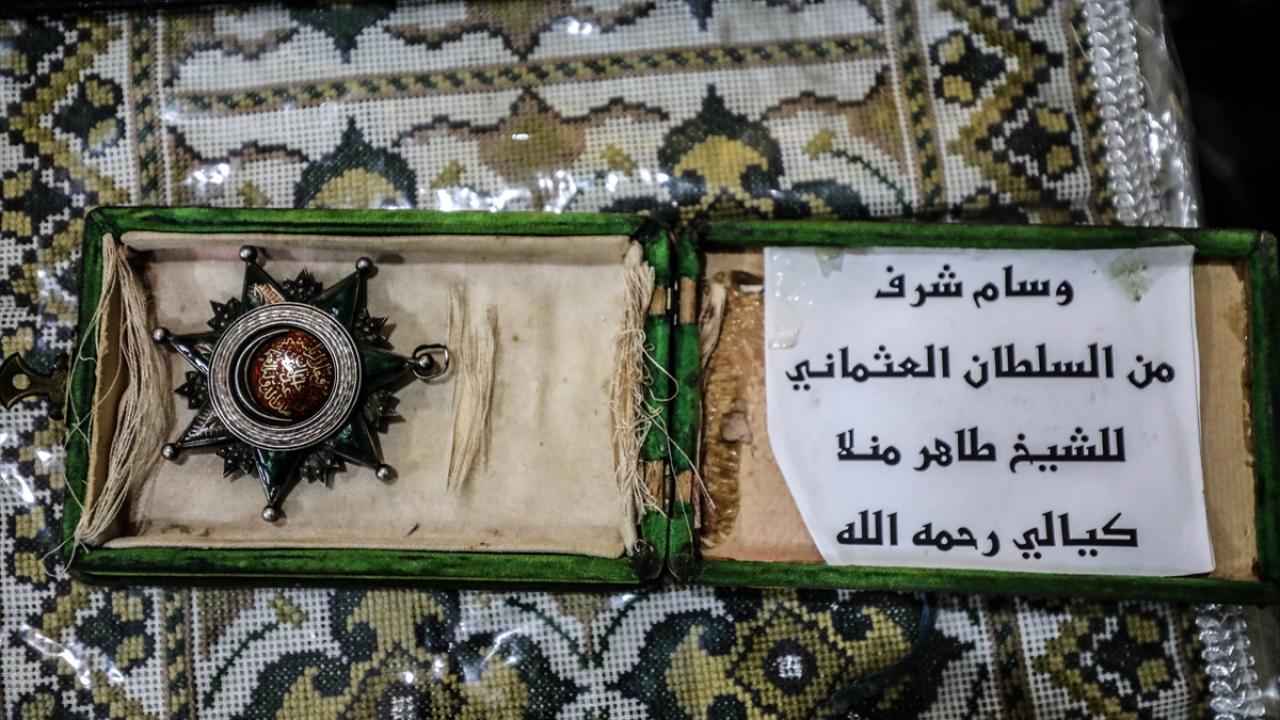 وسام شرف
من السلطان العثماني
للشيخ طاهر منلا
كيالي رحمه الله